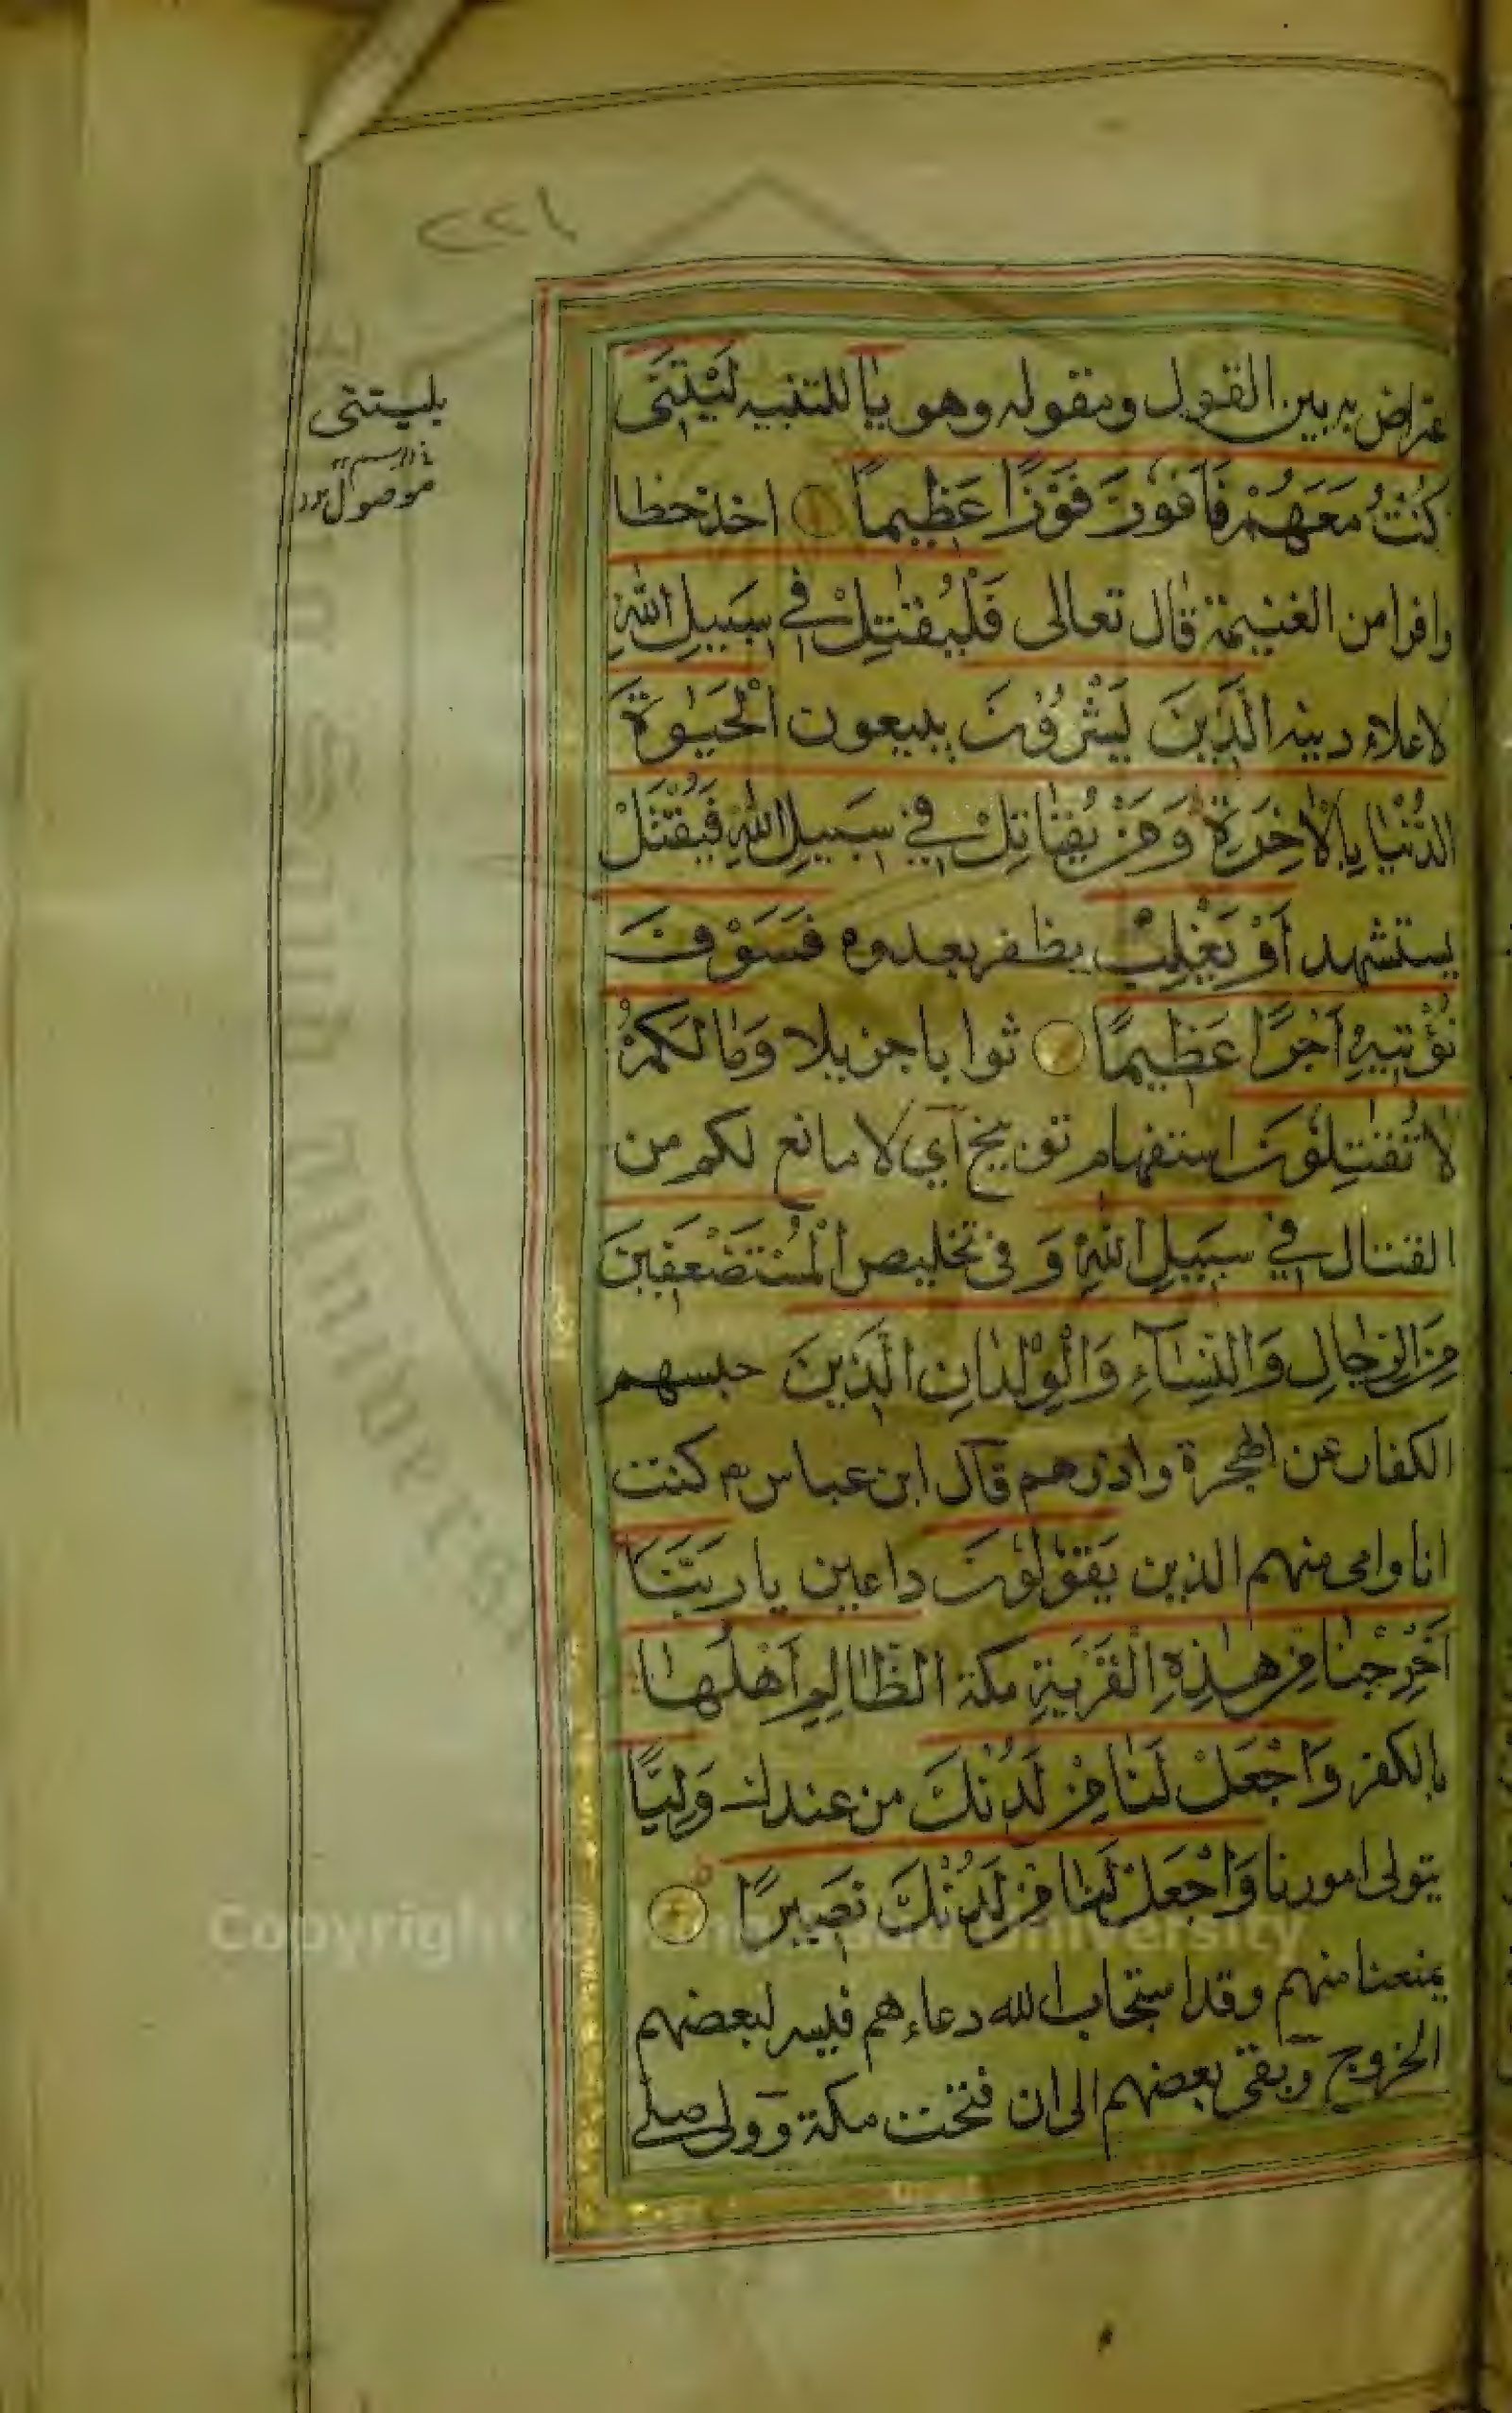 ٢٢١
يليتني
موصول
عتراض به بين القول ومقوله وهو يا للتنبيه لَيْتَنِي
كُنْتُ مَعَهُمْ فَاَفُوزَ فَوْزًا عَظِيمًا اخذ حظا
وافرا من الغنيمة قال تعالى فَلْيُقٰتِلْ فِي سَبِيلِ اللّٰهِ
لاعلاء دينه الَّذِينَ يَشْرُونَ يبيعون الْحَيٰوةَ
الدُّنْيَا بِالْاٰخِرَةِ وَمَنْ يُقَاتِلْ فِي سَبِيلِ اللّٰهِ فَيُقْتَلْ
يستشهد اَوْ يَغْلِبْ يظفر بعدوه فَسَوْفَ
نُؤْتِيهِ اَجْرًا عَظِيمًا ثوابا جزيلا وَمَا لَكُمْ
لَا تُقٰتِلُونَ استفهام توبيخ اي لا مانع لكم من
القتال فِي سَبِيلِ اللّٰهِ وَ في تخليص الْمُسْتَضْعَفِينَ
مِنَ الرِّجَالِ وَالنِّسَآءِ وَالْوِلْدَانِ الَّذِينَ حبسهم
الكفار عن الهجرة واذوهم قال ابن عباس رض كنت
انا وامى منهم الذين يَقُولُونَ داعين يا رَبَّنَا
اَخْرِجْنَا مِنْ هٰذِهِ الْقَرْيَةِ مكة الظَّالِمِ اَهْلُهَا
بالكفر وَاجْعَلْ لَنَا مِنْ لَدُنْكَ من عندك وَلِيًّا
يتولى امورنا وَاجْعَلْ لَنَا مِنْ لَدُنْكَ نَصِيرًا
يمنعنا منهم وقد استجاب الله دعاءهم فيسر لبعضهم
الخروج وبقى بعضهم الى ان فتحت مكة وولى صلى